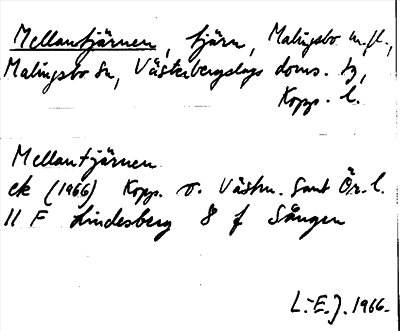 Mellantjärnen, tjärn, Malingsbo m.fl.,
Malingsbo sn, Västerbergslags doms. tg,
Kopp. l.
Mellantjärnen
ek (1966) Kopp. o. Västm. samt Ör. l.
11 F Lindesberg 8 f Sången
L.-E.J. 1966.